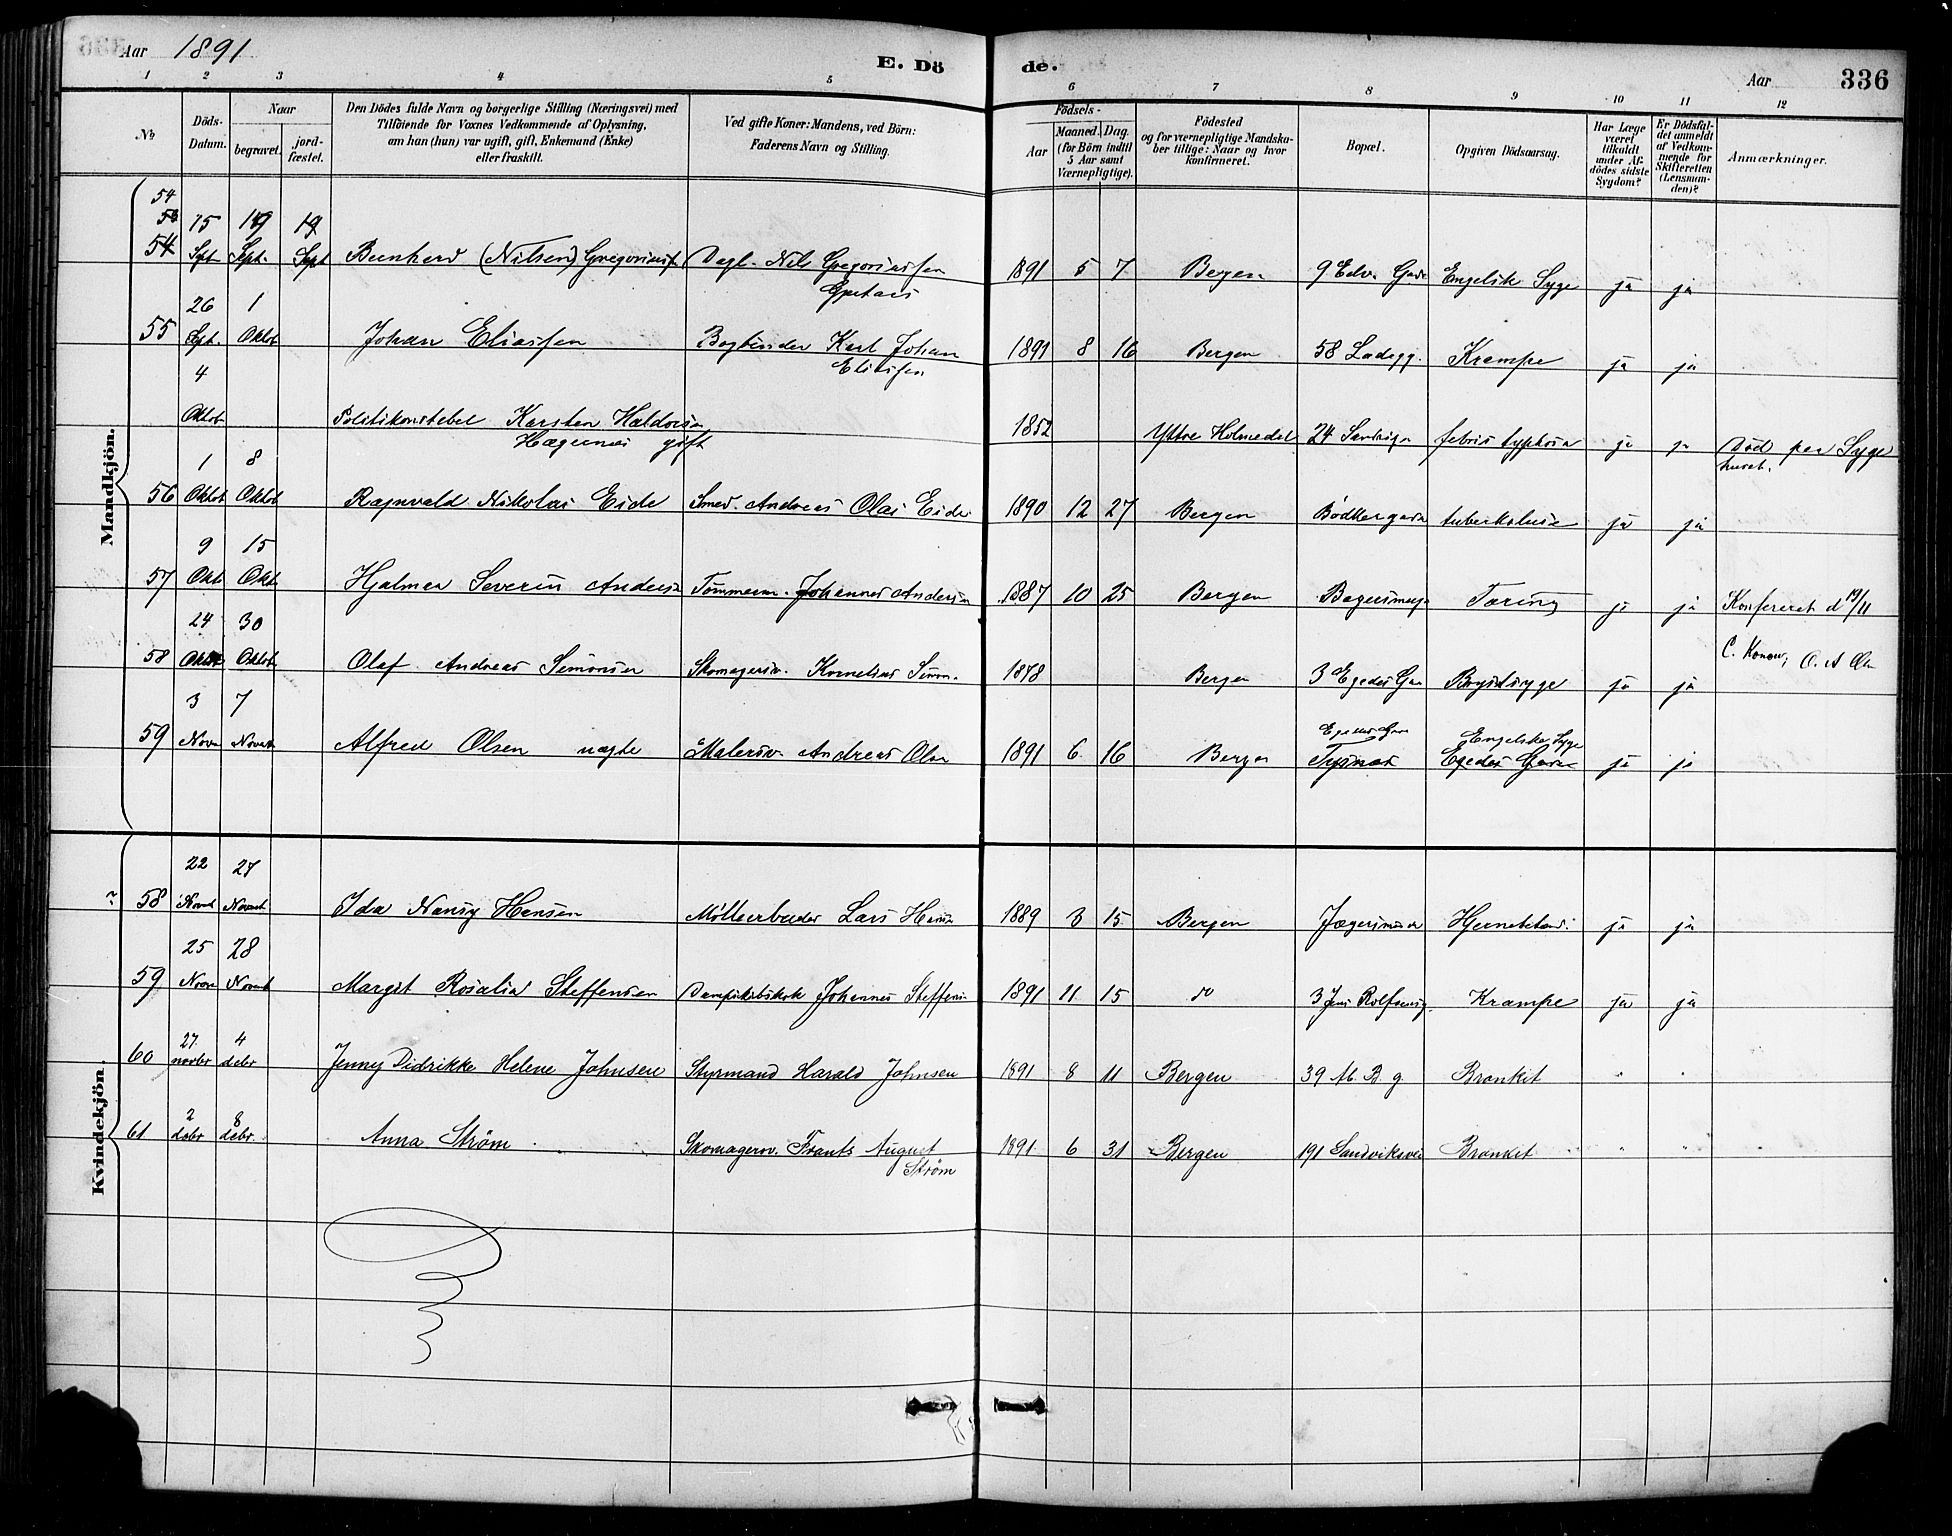 Aar 1891
E. Dö de.
Aar 336
1 2 3 4 5 6 7 8 9 10 11 12
No
Döds-Datum.
Naar
begravet.
jord-fæstet.
Den Dödes fulde Navn og borgerlige Stilling (Næringsvei) med
Tilföiende for Voxnes Vedkommende af Oplysning,
om han (hun) var ugift, gift, Enkemand (Enke)
eller fraskilt.
Ved gifte Koner: Mandens, ved Börn:
Faderens Navn og Stilling.
Födsels-
Aar
Maaned. Dag.
(for Börn indtil
5 Aar samt
Værnepligtige).
Födested
og for værnepligtige Mandska-
ber tillige: Naar og hvor
konfirmeret.
Bopæl.
Opgiven Dödsaarsag.
Har Læge
været
tilkaldt
under Af-
dödes sidste
Sygdom?
Er Dödsfal-
det anmeldt
af Vedkom-
mende for
Skifteretten
(Lensman-
den)?
Anmærkninger.
Mandkjön.
54
15 19 19
Sept. Sept. Sept Bernhard (Nilsen) Gregoriussen Dagl. Nils Gregoriussen 1891 5 7 Bergen 9 Edv. Engelsk Syge ja ja
26 1
55 Sept. Oktob Johan Eliassen Bogbinder Karl Johan Eliassen 1891 8 16 Bergen 58 Ladegg. Krampe ja ja
4
Oktob Politikonstabel Karsten Haldorsen
gift 1852 Yttre Holmedal 24 febris typhosa ja ja Død paa Syge
huset.
1 8
56 Oktob Oktob Ragnvald Nikolai Eide Smed. Andreas Olai Eide 1890 12 27 Bergen Bødkergaden tuberkulose ja ja
9 15
57 Okt Okt Hjalmar Severin Andersen Tømmerm. Johannes Andersen 1887 10 25 Bergen Tæring ja ja Konfereret d 19/11
24 30
58 Oktob Oktob Olaf Andreas Simonsen Skomagersv. Kornelius Simon. 1878 Bergen 3 Egedes Brystsyge ja ja C. Konow; O. A Olsen
3 7
59 Novb Novemb Alfred Olsen uægte Malersv. Andreas Olsen 1891 6 16 Bergen Tysnæs Egedes Gade ja ja
Engelske Syge
Kvindekjön
22 27
58 Novemb Novemb Ida Nansy Hansen Møllearbeider Lars Hansen 1889 3 15 Bergen Hjernebetænd. ja ja
25 28
59 Novb Novemb Margit Rosalia Steffensen Dampskibskok Johannes Steffensen 1891 11 15 do 3 Jens Rolfsensg. Krampe ja ja
27 4
60 novbr decbr Jenny Didrikke Helene Johnsen Styrmand Harald Johnsen 1891 8 11 Bergen 39 M. B. g. Bronkit " "
2 8
61 decbr decbr. Anna Strøm Skomagersv. Frants August
Strøm 1891 6 31 Bergen 191 Sandviksvei Bronkit " "